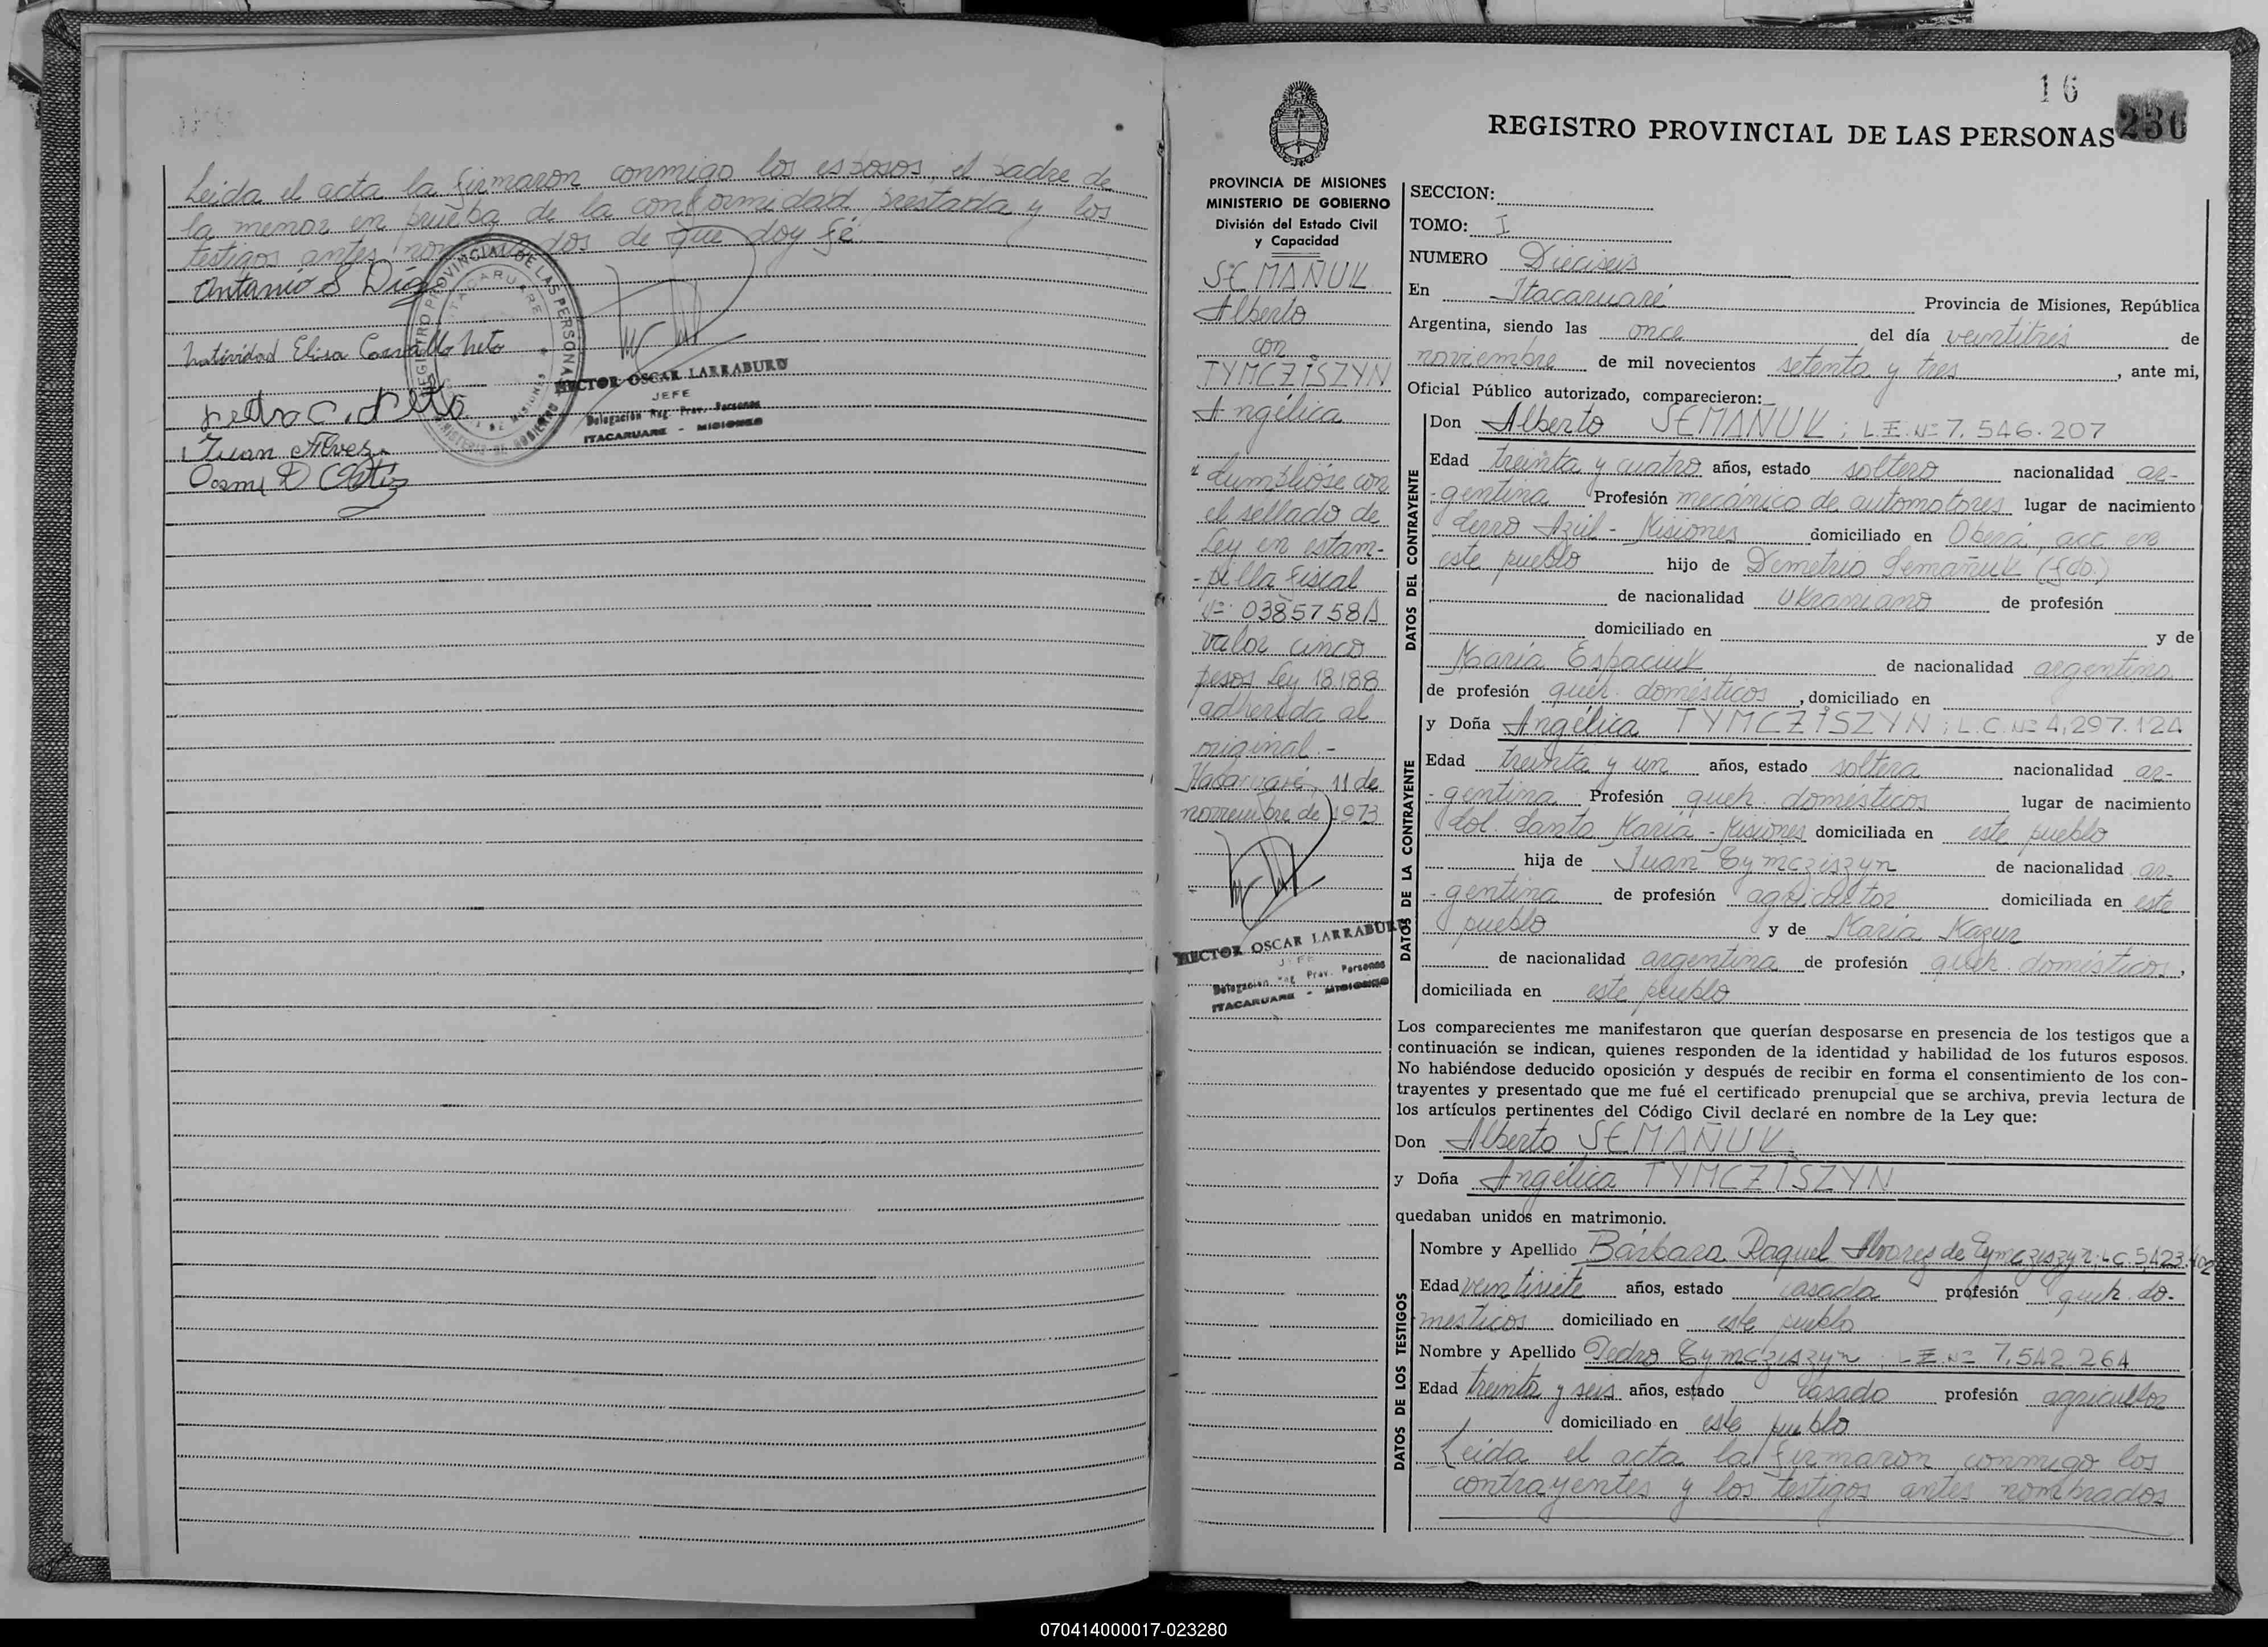 Leida el acta la firmaron conmigo los esposos, el padre de
la menor en prueba de la conformidad prestada y los
testigos antes nombrados de que doy fé.
Antonio S Díaz
Natividad Elisa Carvallo Neto
Pedro C. Neto
Juan Alvez
REGISTRO PROVINCIAL DE LAS PERSONAS
ITACARUARE
MINISTERIO DE GOBIERNO
HECTOR OSCAR LARRABURO
JEFE
Delegación Reg. Prov. Personas
ITACARUARE - MISIONES
16
236
REGISTRO PROVINCIAL DE LAS PERSONAS
PROVINCIA DE MISIONES
MINISTERIO DE GOBIERNO
División del Estado Civil
y Capacidad
SEMAÑUK
Alberto
con
TYMCZISZYN
Angélica
"Cumplióse con
el sellado de
Ley en estam-
-pilla fiscal
Nº: 0385758A
valor cinco
pesos Ley 18.188
adherida al
original.-
Itacaruaré, 11 de
noviembre de 1973
HECTOR OSCAR LARRABURO
JEFE
Delegación Reg. Prov. Personas
ITACARUARE - MISIONES
SECCION:
TOMO: I
NUMERO Dieciseis
En Itacaruaré Provincia de Misiones, República
Argentina, siendo las once del día veintitrés de
noviembre de mil novecientos setenta y tres, ante mi,
Oficial Público autorizado, comparecieron:
DATOS DEL CONTRAYENTE
Don Alberto SEMAÑUK; L.E. Nº 7.546.207
Edad treinta y cuatro años, estado soltero nacionalidad ar-
-gentina Profesión mecánico de automotores lugar de nacimiento
Cerro Azul - Misiones domiciliado en Oberá, acc. en
este pueblo hijo de Demetrio Semañuk (fdo.)
de nacionalidad Ukraniano de profesión
domiciliado en y de
María Espaciuk de nacionalidad argentina
de profesión queh. domésticos, domiciliado en
DATOS DE LA CONTRAYENTE
y Doña Angélica TYMCZISZYN; L.C. Nº 4,297.124
Edad treinta y un años, estado soltera nacionalidad ar-
-gentina Profesión queh. domésticos lugar de nacimiento
Col. Santa María - Misiones domiciliada en este pueblo
hija de Juan Tymcziszyn de nacionalidad ar-
-gentina de profesión agricultor domiciliada en este
pueblo y de María Kazun
de nacionalidad argentina de profesión queh. domésticos,
domiciliada en este pueblo
Los comparecientes me manifestaron que querían desposarse en presencia de los testigos que a
continuación se indican, quienes responden de la identidad y habilidad de los futuros esposos.
No habiéndose deducido oposición y después de recibir en forma el consentimiento de los con-
trayentes y presentado que me fué el certificado prenupcial que se archiva, previa lectura de
los artículos pertinentes del Código Civil declaré en nombre de la Ley que:
Don Alberto SEMAÑUK
y Doña Angélica TYMCZISZYN
quedaban unidos en matrimonio.
DATOS DE LOS TESTIGOS
Nombre y Apellido Bárbara Raquel Alvarez de Tymcziszyn; LC. 5,423.402
Edad veintisiete años, estado casada profesión queh. do-
mésticos domiciliado en este pueblo
Nombre y Apellido Pedro Tymcziszyn; L.E. Nº 7,542.264
Edad treinta y seis años, estado casado profesión agricultor
domiciliado en este pueblo
Leida el acta la firmaron conmigo los
contrayentes y los testigos antes nombrados
070414000017-023280